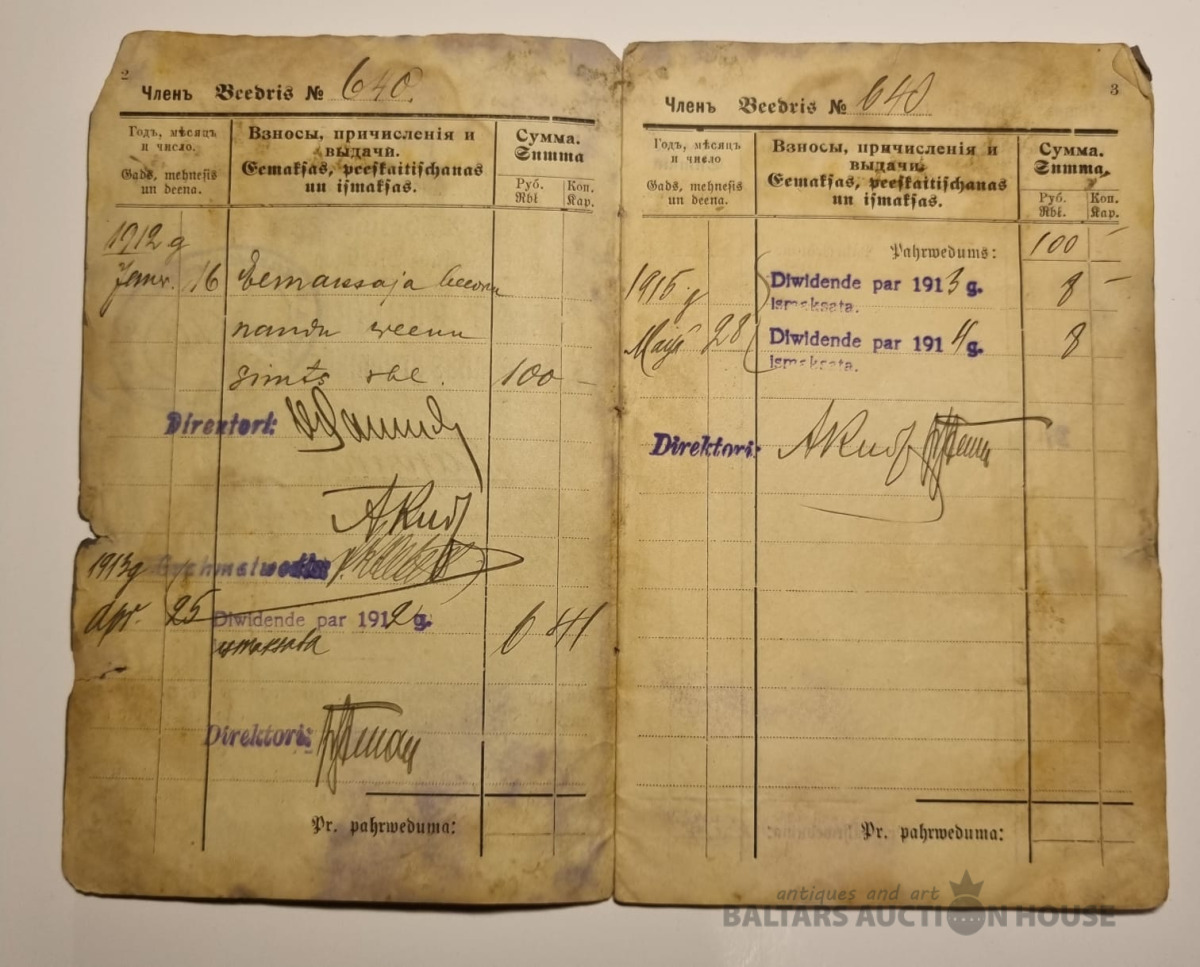 2
Членъ Beedris № 640.
Годъ, мѣсяцъ и число.
Gads, mehnesis un deena.
Взносы, причисленія и выдачи.
Eemaksas, peeskaitischanas un ismaksas.
Сумма.
Summa
Руб. Rbl.
Коп. Kap.
1912 g
Janv. 16 Eemaksaja beedru
naudu weenu
simts rbl. 100 —
Direktori:
A Rudz
1913 g
Apr. 25 Diwidende par 1912 g. 6 41
ismaksata
Direktori:
Pr. pahrweduma:
3
Членъ Beedris № 640
Годъ, мѣсяцъ и число
Gads, mehnesis un deena.
Взносы, причисленія и выдачи.
Eemaksas, peeskaitischanas un ismaksas.
Сумма.
Summa.
Руб. Rbl.
Коп. Kap.
Pahrwedums: 100 —
1915 g Diwidende par 1913 g. 8 —
ismaksata.
Maijā 28 Diwidende par 1914 g. 8
ismaksata.
Direktori: A Rudz
Pr. pahrweduma:
antiques and art
BALTARS AUCTION HOUSE